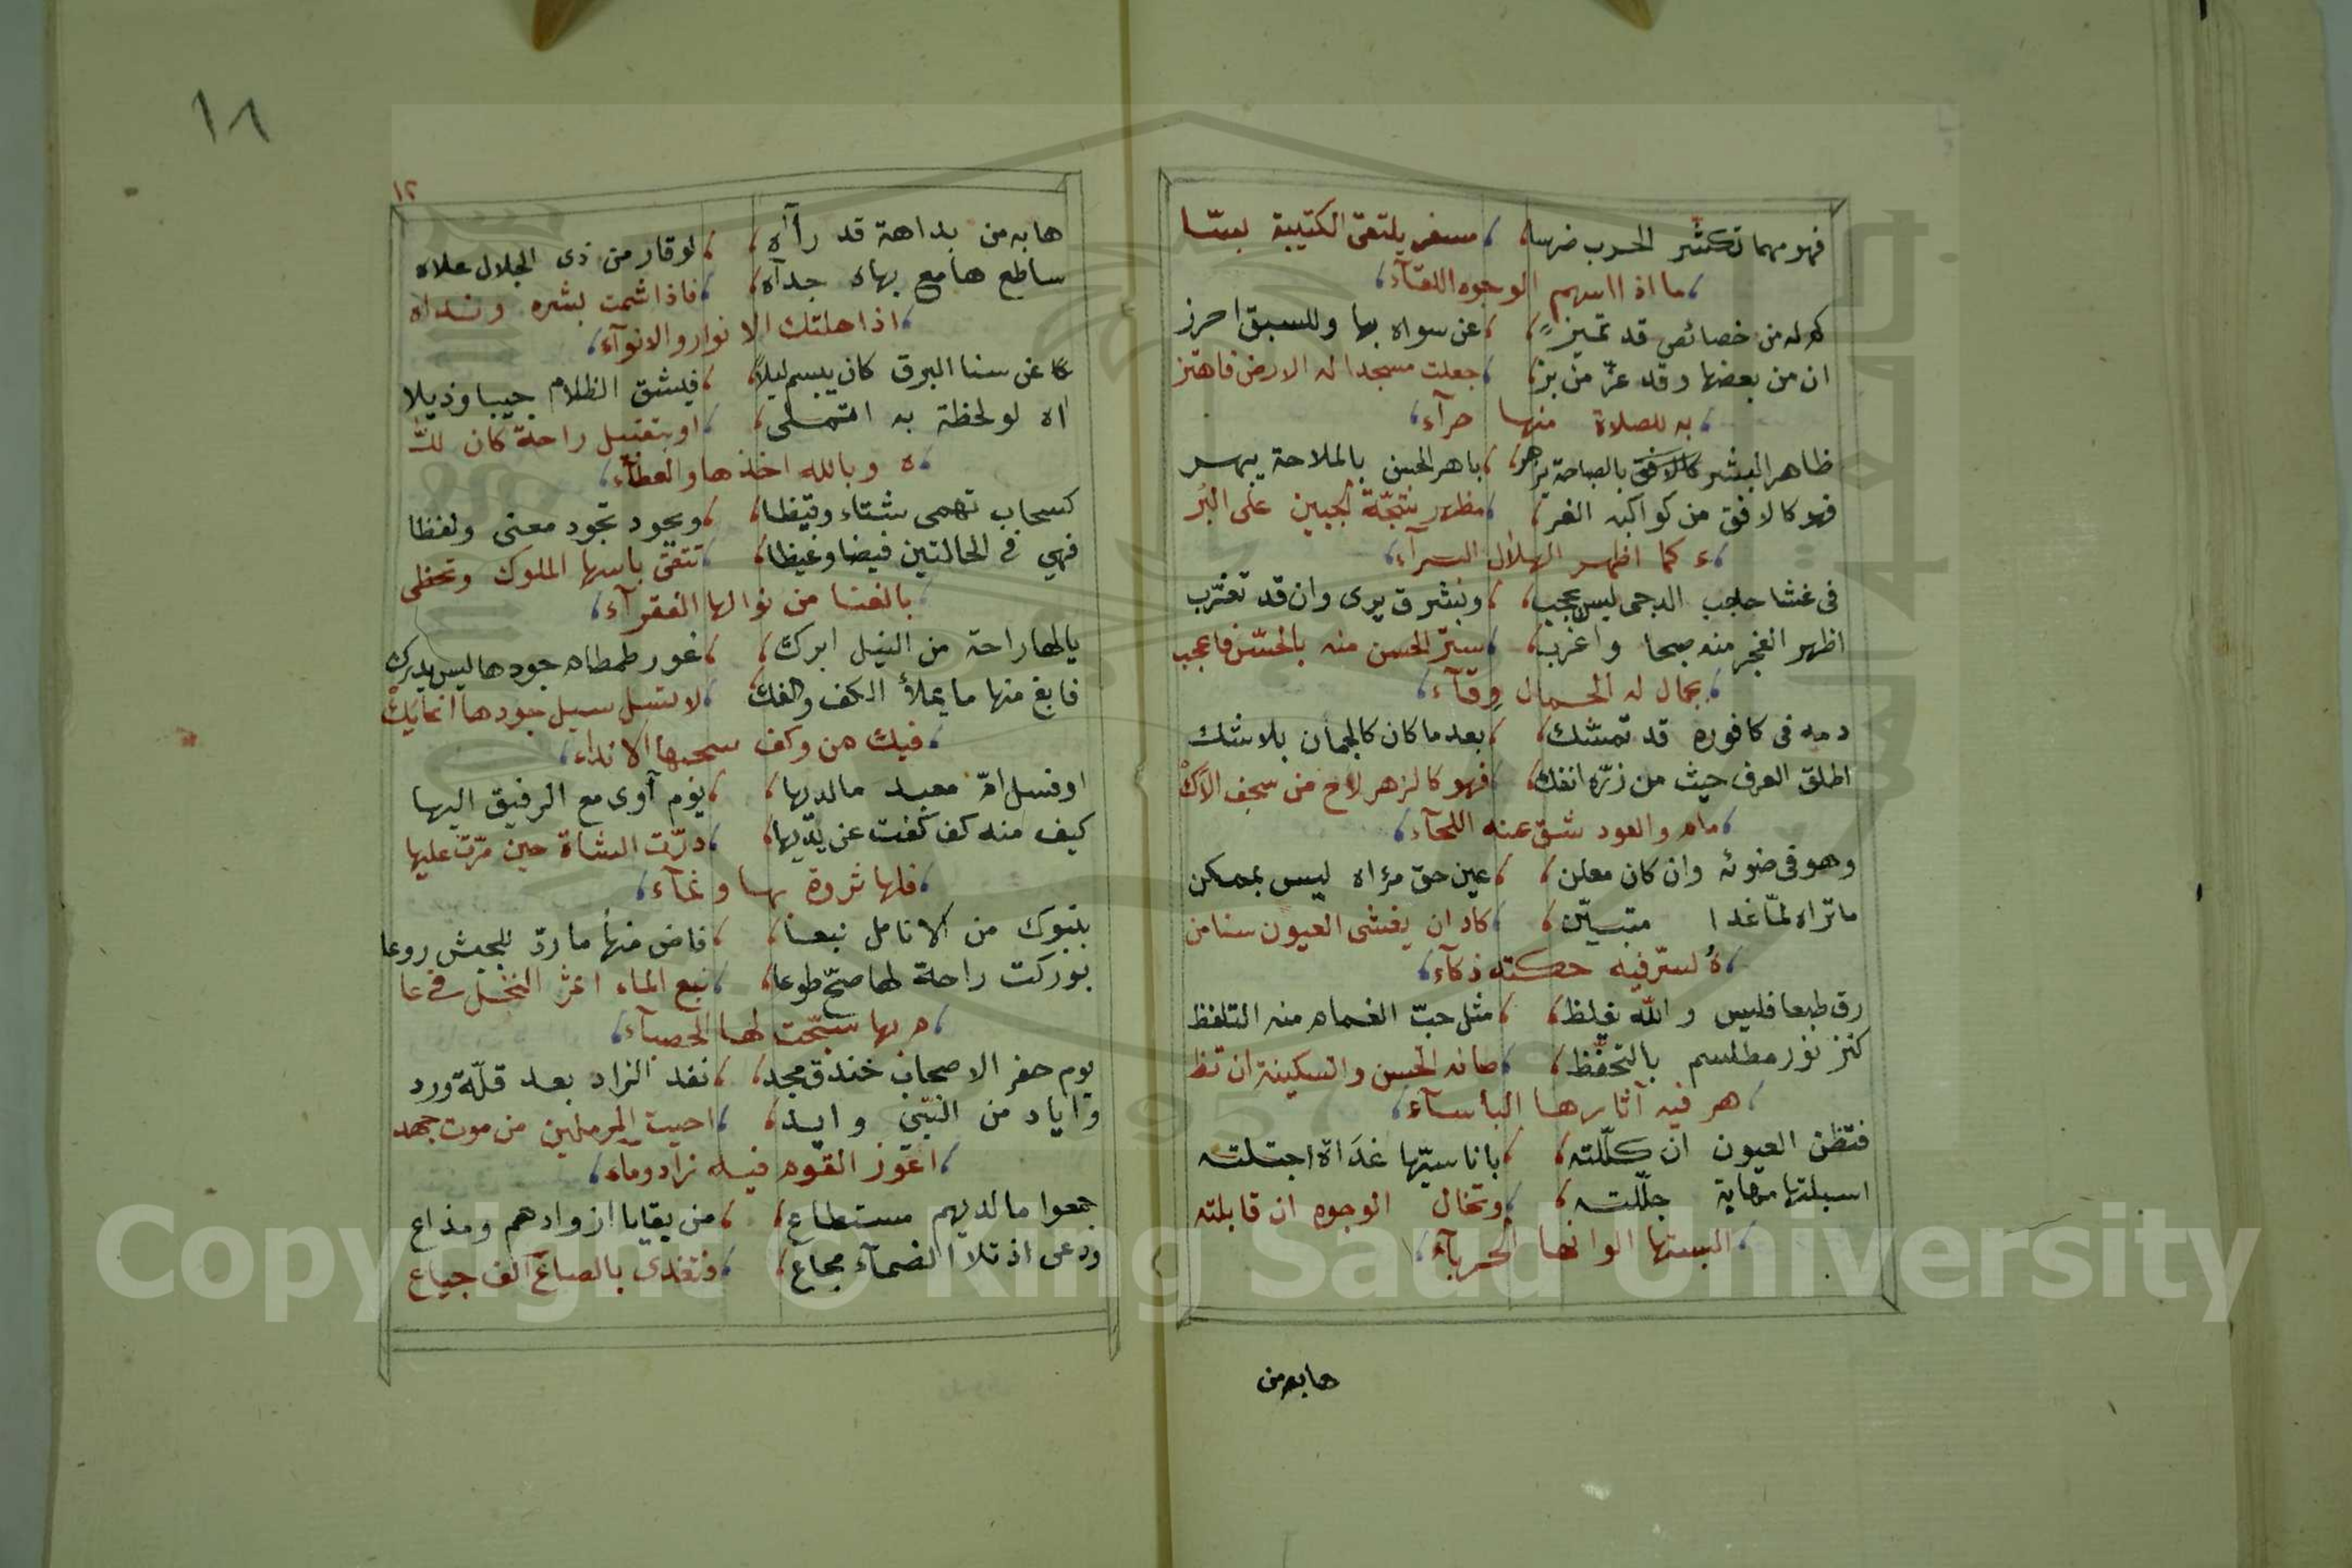 فهو مهما تكشر الحرب ضرسا ، مسفر يلتقى الكتيبة بسا
ما اذا اسهم الوجوه اللقآء
كم له من خصائص قد تميز ، عن سواه بها وللسبق احرز
ان من بعضها وقد عز من بز ، جعلت مسجدا له الارض فاهتز
به للصلاة منها حرآء
ظاهر البشر كالافق بالصباحة يزهر ، باهر الحسن بالملاحة يبهر
فهو كالافق من كواكبه الغر ، مظهر شجة الجبين على البر
ء كما اظهر الهلال البرآء
فى غشا حاجب الدجى ليس يحجب ، وبشرق يرى وان قد تغرب
اظهر الفجر منه صبحا واغرب ، ستر الحسن منه بالحسن فاعجب
بجمال له الجمال وقآء
دمه فى كافوره قد تمسك ، بعد ما كان كالجمان بلا شك
اطلق العرف حيث من زره انفك ، فهو كالزهر لاح من سجف الاك
مام والعود شق عنه اللحآء
وهو فى ضوئه وان كان معلن ، عين حق مرٔاه ليس بممكن
ما تراه لما غدا متبين ، كاد ان يغشى العيون سنا من
ه لسر فيه حكته ذكآء
رق طبعا فليس والله يغلظ ، مثل حب الغمام منه التلفظ
كنز نور مطلسم بالتحفظ ، صانه الحسن والسكينة ان تظ
هر فيه آثارها البأسآء
فتظن العيون ان كللته ، باناسيها غداة اجتلته
اسبلتها مهابة جللته ، وتخال الوجوه ان قابلته
البستها الوانها الحربآء
هابه من
١٨
١٢
هابه من بداهة قد رآاه ، لوقار من ذى الجلال علاه
ساطع هامع بهاه جدآه ، فاذا شمت بشره ونداه
اذهلتك الانوار والانوآء
كا عن سنا البرق كان يبسم ليلا ، فيشق الظلام جيبا وذيلا
اه لو لحظة به اتملى ، او بتقبيل راحة كان لل
ه وبالله اخذها والعطآء
كسحاب تهمى شتاء وقيظا ، ويجود تجود معنى ولفظا
فهي فى الحالتين فيضا وغيظا ، تتقى باسها الملوك وتحظى
بالغنا من نوالها الفقرآء
يا لها راحة من النيل ابرك ، غور طمطام جودها ليس يدرك
فابغ منها ما يملأ الكف والفك ، لا تسل سيل جودها انما يك
فيك من وكف سحبها الانداء
او فسل ام معبد ما لديها ، يوم آوى مع الرفيق اليها
كيف منه كف كفت عن يديها ، درت الشاة حين مرت عليها
فلها ثروة بها ونمآء
بتبوك من الانامل نبعا ، فاض منها ما رد للجيش روعا
بوركت راحة لها صح طوعا ، نبع الماء اثمر النخل فى عا
م بها سبحت لها الحصبآء
يوم حفر الاصحاب خندق مجد ، نفد الزاد بعد قلة ورد
واياد من النبى وايد ، احيت المرملين من موت جهد
اعوز القوم فيه زاد ومآء
جمعوا ما لديهم مستطاع ، من بقايا ازوادهم ومذاع
ودعى اذ تلا الضمآء مجاع ، فتغدى بالصاع الف جياع
Copyright © King Saud University
1957